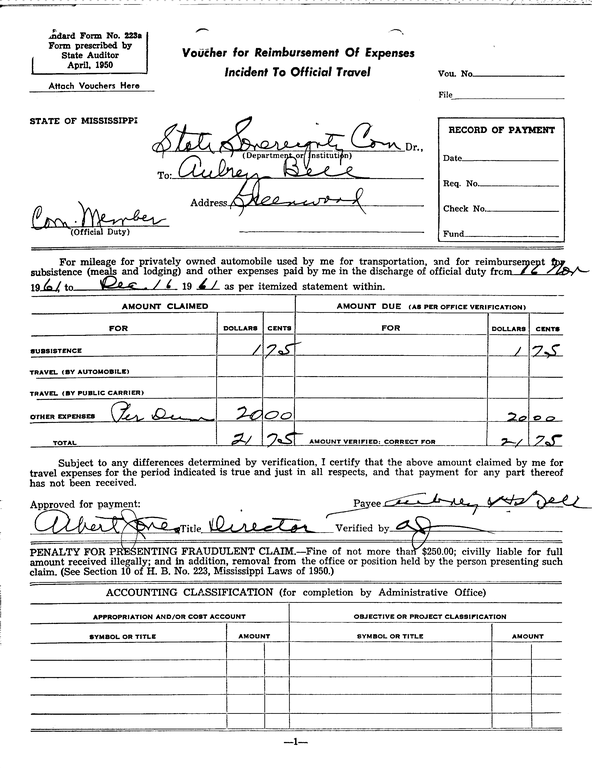 ndard Form No. 223a
Form prescribed by
State Auditor
April, 1950
Attach Vouchers Here
Voucher for Reimbursement Of Expenses
Incident To Official Travel
Vou. No.
File
STATE OF MISSISSIPPI
State Sovereignty Com Dr.,
(Department or Institution)
To: Aubrey Bell
Address Greenwood
Com. Member
(Official Duty)
RECORD OF PAYMENT
Date
Req. No.
Check No.
Fund
For mileage for privately owned automobile used by me for transportation, and for reimbursement for
subsistence (meals and lodging) and other expenses paid by me in the discharge of official duty from 16 Nov
1961 to Dec. 16 1961 as per itemized statement within.
AMOUNT CLAIMED AMOUNT DUE (AS PER OFFICE VERIFICATION)
FOR DOLLARS CENTS FOR DOLLARS CENTS
SUBSISTENCE 1 75 1 75
TRAVEL (BY AUTOMOBILE)
TRAVEL (BY PUBLIC CARRIER)
OTHER EXPENSES Per Diem 20 00 20 00
TOTAL 21 75 AMOUNT VERIFIED: CORRECT FOR 21 75
Subject to any differences determined by verification, I certify that the above amount claimed by me for
travel expenses for the period indicated is true and just in all respects, and that payment for any part thereof
has not been received.
Approved for payment: Payee Aubrey H. Bell
Albert Jones Title Director Verified by aj
PENALTY FOR PRESENTING FRAUDULENT CLAIM.—Fine of not more than $250.00; civilly liable for full
amount received illegally; and in addition, removal from the office or position held by the person presenting such
claim. (See Section 10 of H. B. No. 223, Mississippi Laws of 1950.)
ACCOUNTING CLASSIFICATION (for completion by Administrative Office)
APPROPRIATION AND/OR COST ACCOUNT OBJECTIVE OR PROJECT CLASSIFICATION
SYMBOL OR TITLE AMOUNT SYMBOL OR TITLE AMOUNT
—1—